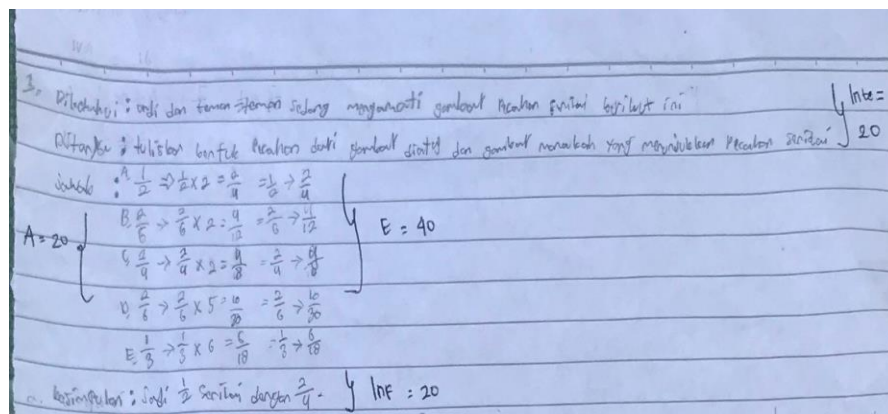 1. Diketahui : Andi dan teman-teman sedang mengamati gambar Pecahan senilai berikut ini
Inte = 20
Ditanya : tuliskan bentuk Pecahan dari gambar diatas dan gambar manakah yang menunjukkan Pecahan senilai
Jawab : A. 1/2 ⇒ 1/2 x 2 = 2/4 = 1/2 → 2/4
B. 2/6 → 2/6 x 2 = 4/12 = 2/6 → 4/12
A = 20
E = 40
C. 2/4 → 2/4 x 2 = 4/8 = 2/4 → 4/8
D. 2/6 → 2/6 x 5 = 10/30 = 2/6 → 10/30
E. 1/3 → 1/3 x 6 = 6/18 = 1/3 → 6/18
Kesimpulan : Jadi 1/2 Senilai dengan 2/4.
InF = 20